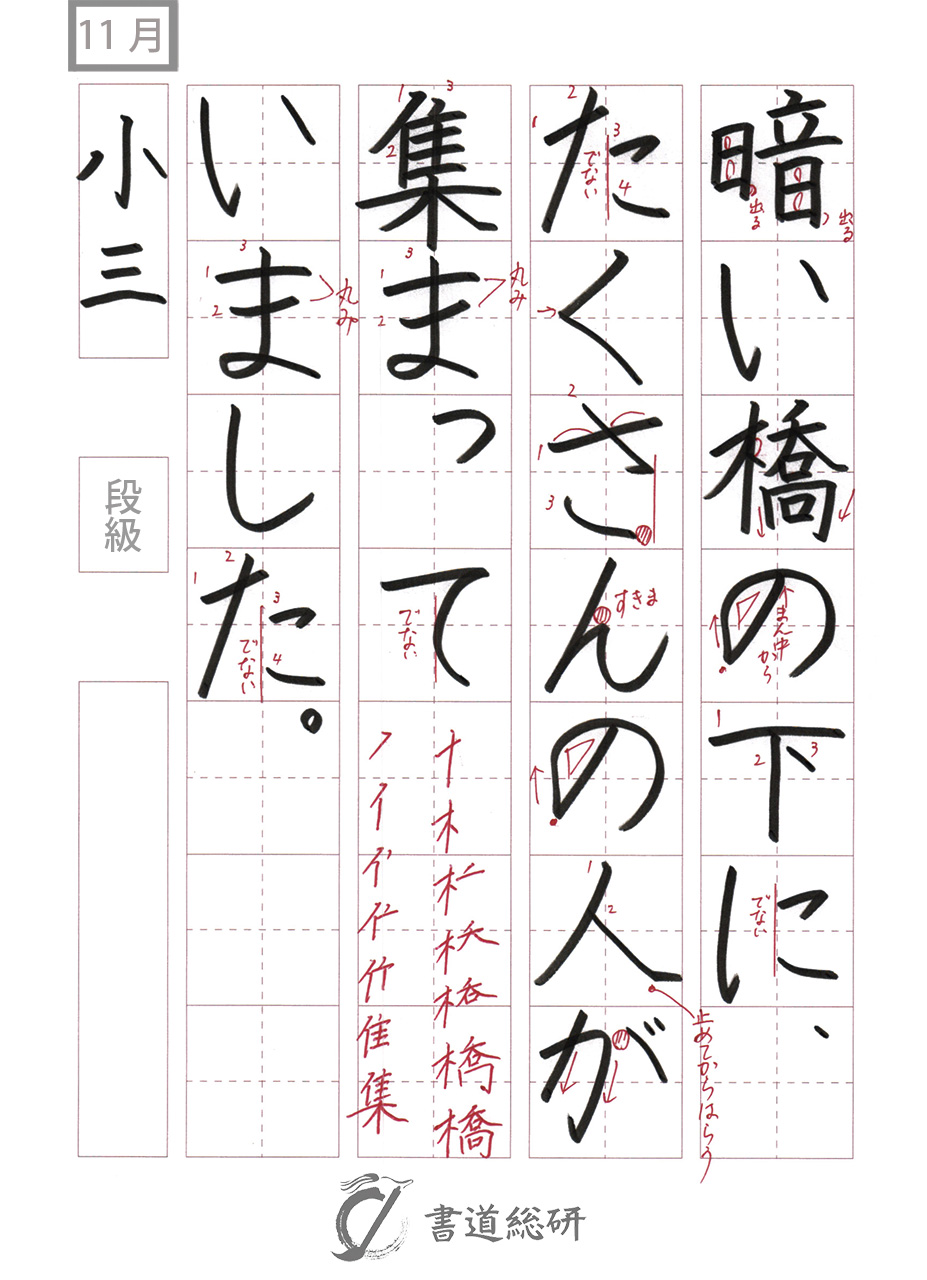 11月
暗い橋の下に、
たくさんの人が
集まって
いました。
小三
段級
出る
出る
まん中から
でない
でない
すきま
止めてからはらう
丸み
でない
丸み
でない
橋
集
書道総研